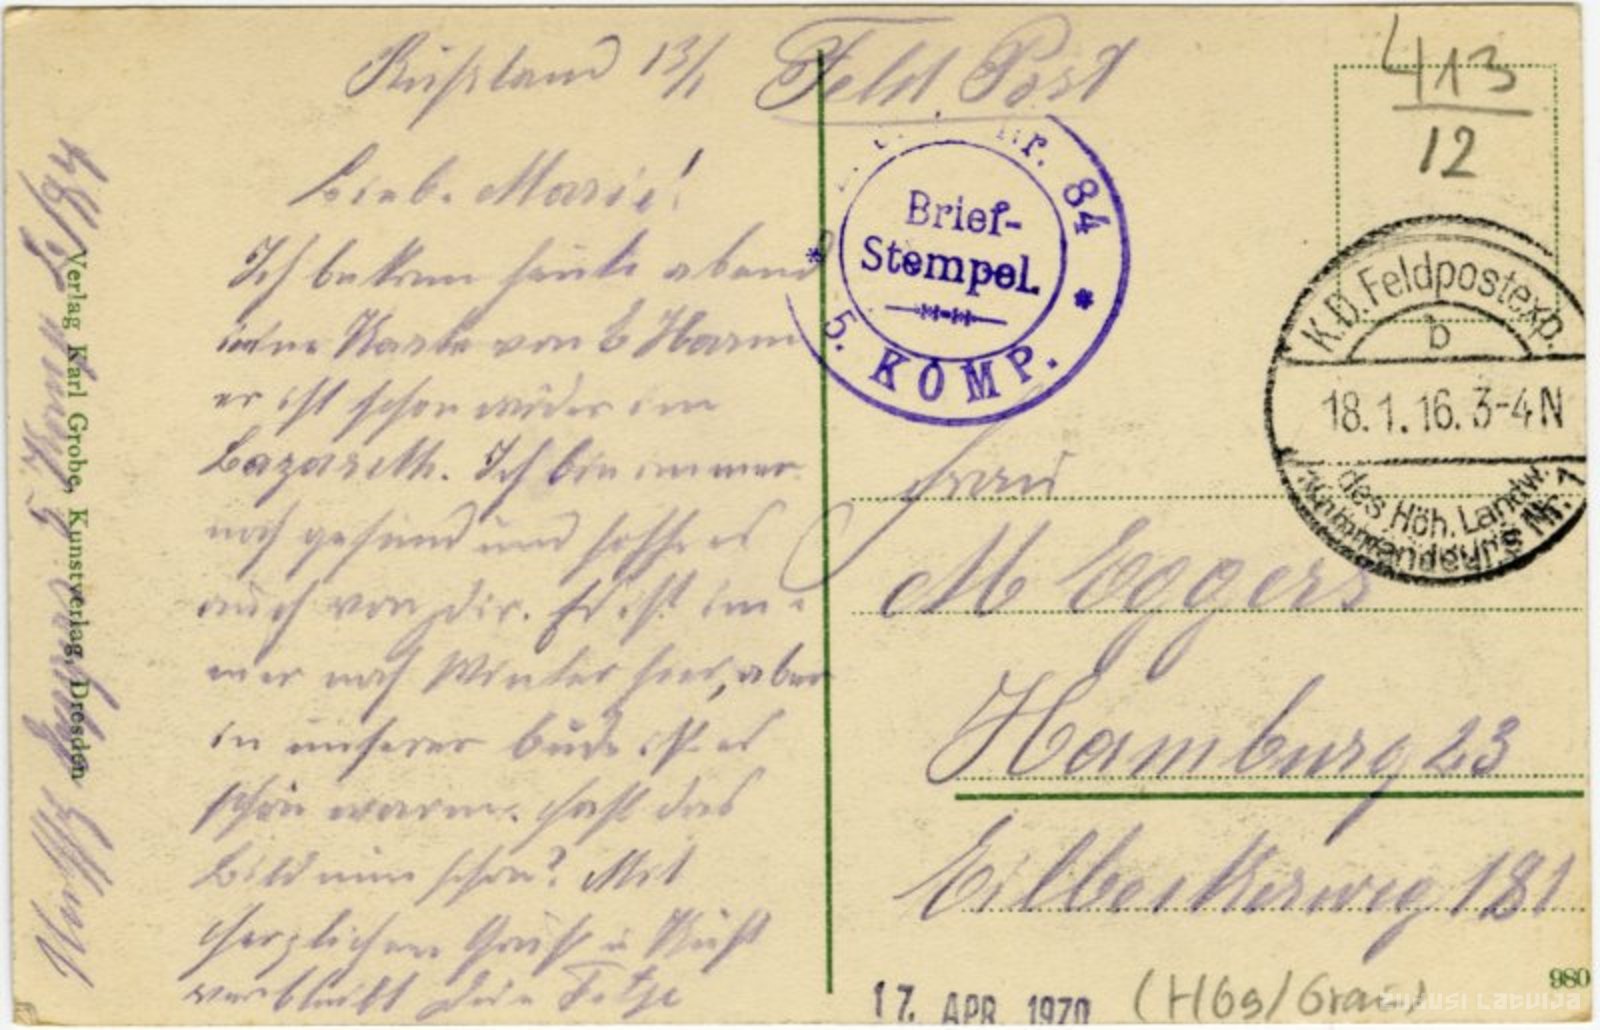 Rußland 13/1
Feld Post
Lieb. Marie!
Ich bekam heute abend
eine Karte von
er ist schon wider im
Lazareth. Ich bin immer
noch gesund und hoffe es
auch von dir. Es ist im
mer noch Winter hier, aber
in unserer bude ist es
schön warm. hast das
Bild nun schon? Mit
herzlichen Gruß u Kuß
verbleibt dein Fetze
Verlag Karl Grobe, Kunstverlag, Dresden
Nr. 84
Brief-
Stempel.
* 5. KOMP. *
413
12
K.D. Feldpostexp.
b
18.1.16. 3-4N
des Höh. Landw.
Kommandeurs Nr. 1
Frau
M Eggers
Hamburg 23
Eilbeckerweg 181
980
17. APR 1970
ZUDUSI LATVIJA